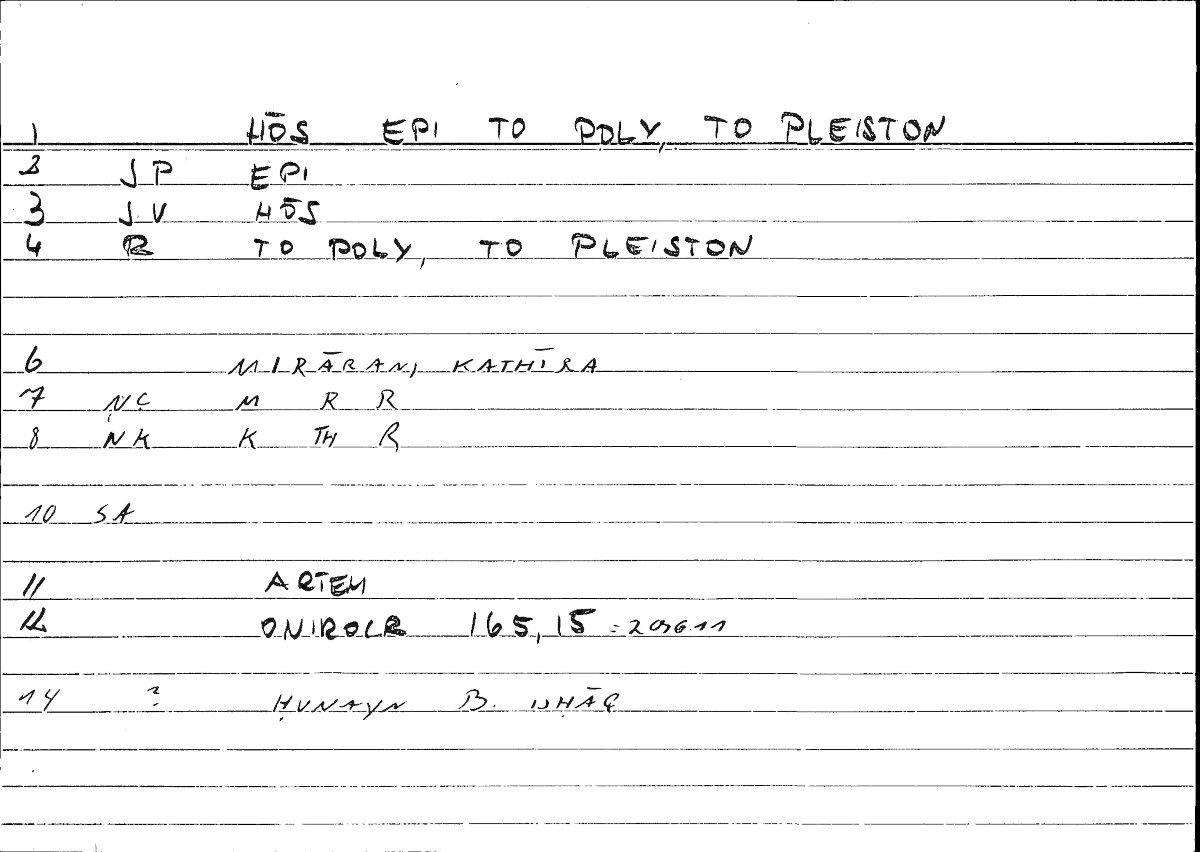 1 HŌS EPI TO POLY, TO PLEISTON
2 JP EPI
3 JV HŌS
4 R TO POLY, TO PLEISTON
6 MIRĀRAN, KATHĪRA
7 ṆC̣ M R R
8 NK K TH R
10 SA
11 ARTEM
12 ONIROCR 165,15 = 206.11
14 ? ḤUNAYN B. ISḤĀQ